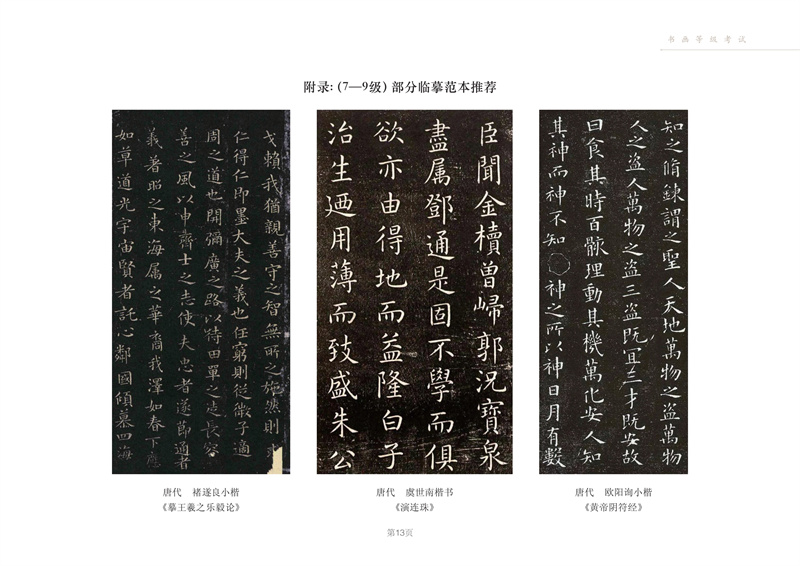 书画等级考试
附录：（7—9级）部分临摹范本推荐
戈賴我猶親善守之智無所之施然則求
仁得仁即墨大夫之義也任窮則從微子適
周之道也開彌廣之路以待田單之徒長容
善之風以申齊士之志使夫忠者遂節通者
義著昭之東海属之華裔我澤如春下應
如草道光宇宙賢者託心鄰國傾慕四海
唐代 褚遂良小楷
《摹王羲之乐毅论》
臣聞金櫝曾歸郭況寶泉
盡属鄧通是固不學而俱
欲亦由得地而益隆白子
治生廼用薄而致盛朱公
唐代 虞世南楷书
《演连珠》
知之脩鍊謂之聖人天地萬物之盜萬物
人之盜人萬物之盜三盜既宜三才既安故
曰食其時百骸理動其機萬化安人知
其神而神不知神之所以神日月有數
唐代 欧阳询小楷
《黄帝阴符经》
第13页